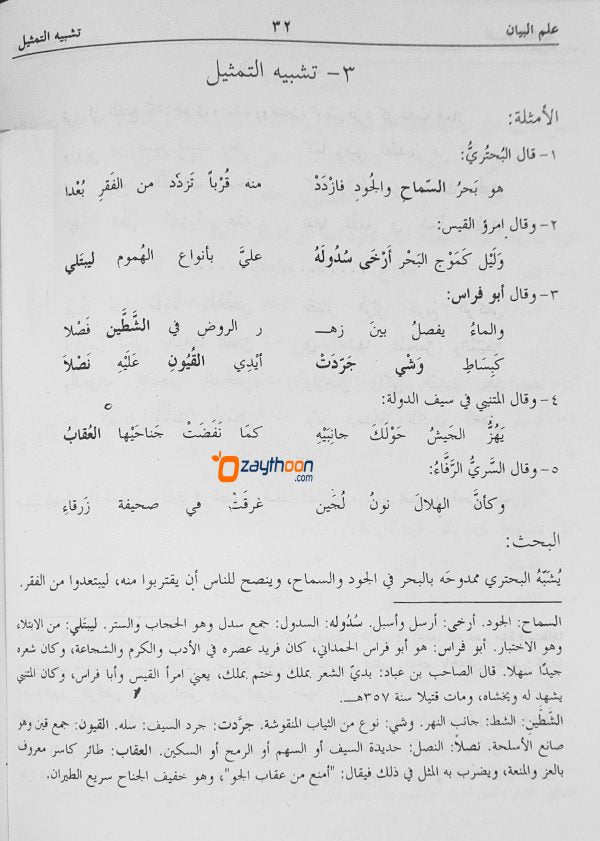 علم البيان ٣٢ تشبيه التمثيل
٣- تشبيه التمثيل
الأمثلة:
١- قال البُحتُريُّ:
هو بَحرُ السّماحِ والجُودِ فازْدَدْ منه قُرْباً تزدَدْ من الفَقرِ بُعْدا
٢- وقال امرؤ القيس:
وَلَيْل كَمَوْج البَحْر أَرْخَى سُدُولَهُ عليَّ بأنواع الهُموم ليبتَلي
٣- وقال أبو فراس:
والماءُ يفصلُ بينَ زهـ ر الروضِ في الشَّطَّين فَصْلا
كَبِسَاطِ وَشْي جَرّدَتْ أيْدِي القُيُونِ عَلَيْهِ نَصْلاَ
٤- وقال المتنبي في سيف الدولة:
يَهُزُّ الجَيشُ حَوْلَكَ جانِبَيْهِ كمَا نَفَضَتْ جَناحَيْها العُقابُ
zaythoon
.com
٥- وقال السَريُّ الرَّفَّاءُ:
وكأنَّ الهلالَ نونُ لُجَين غرقَتْ في صحيفة زَرقاءِ
البحث:
يُشَبِّهُ البحتري ممدوحَه بالبحر في الجود والسماح، وينصح للناس أن يقتربوا منه، ليبتعدوا من الفقر.
السماح: الجود. أرخى: أرسل وأسبل. سُدُوله: السدول: جمع سدل وهو الحجاب والستر. ليبتَلي: من الابتلاء
وهو الاختبار. أبو فراس: هو أبو فراس الحمداني، كان فريد عصره في الأدب والكرم والشجاعة، وكان شعره
جيدًا سهلا. قال الصاحب بن عباد: بديّ الشعر بملك وختم بملك، يعني امرأ القيس وأبا فراس، وكان المتنبي
يشهد له ويخشاه، ومات قتيلا سنة ٣٥٧هـ.
الشَّطّين: الشط: جانب النهر. وشي: نوع من الثياب المنقوشة. جرَّدت: جرد السيف: سله. القيون: جمع قين وهو
صانع الأسلحة. نصلاً: النصل: حديدة السيف أو السهم أو الرمح أو السكين. العقاب: طائر كاسر معروف
بالعز والمنعة، ويضرب به المثل في ذلك فيقال: "أمنع من عقاب الجو"، وهو خفيف الجناح سريع الطيران.